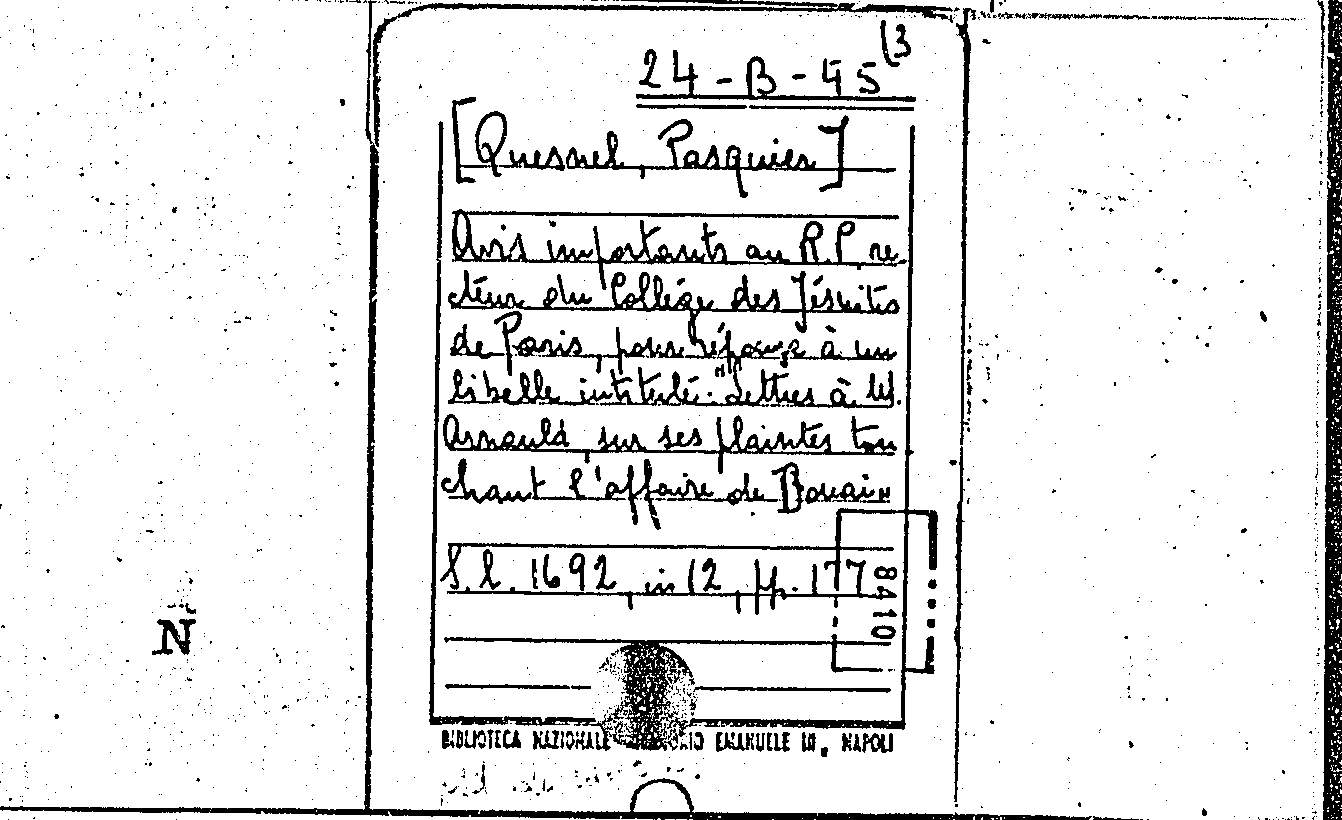 24-B-45 (3
[Quesnel, Pasquier]
Avis importants au R.P. re-
cteur du Collège des Jésuites
de Paris, pour réponse à un
libelle intitulé: "Lettres à M.
Arnauld, sur ses plaintes tou
chant l'affaire de Douai"
S.l. 1692, in 12, pp. 177
8410
N
BIBLIOTECA NAZIONALE EMANUELE III, NAPOLI